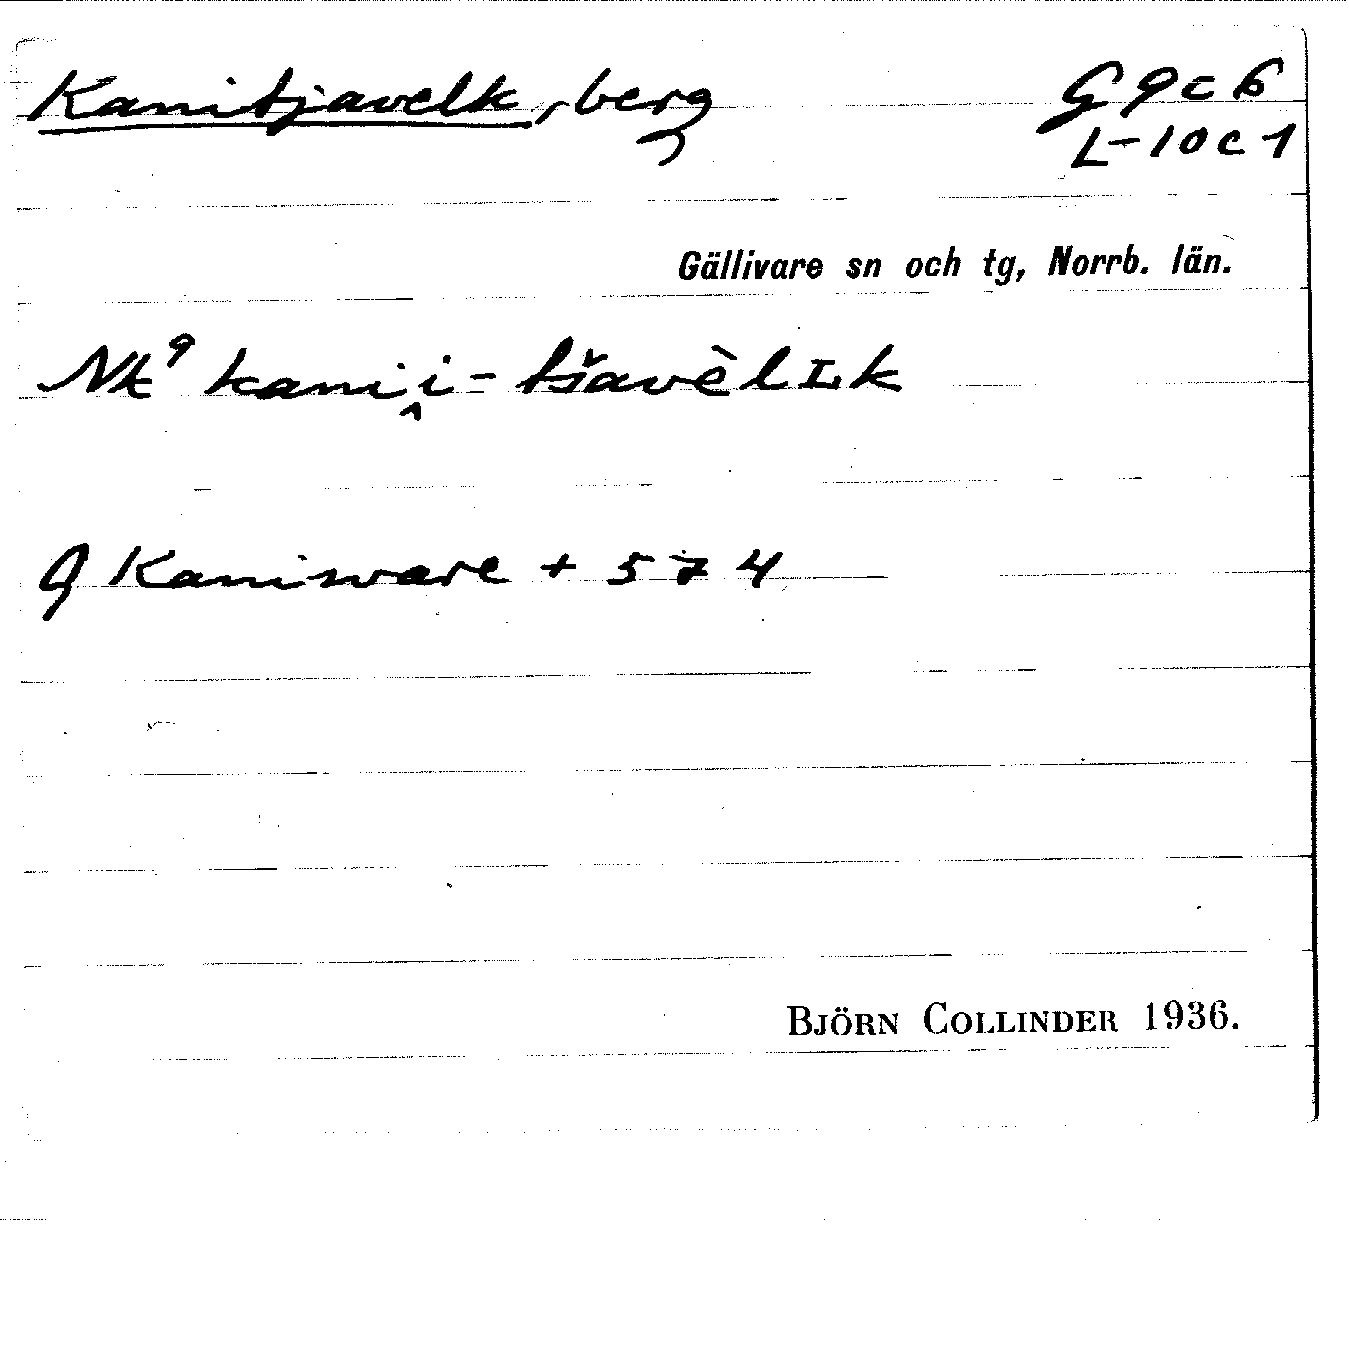 Kanitjavelk, berg G 9 c 6
L-10 c 1
Gällivare sn och tg, Norrb. län.
Nk⁹ kani̭i-tšavèlɪk
G Kanisware + 574
BJÖRN COLLINDER 1936.